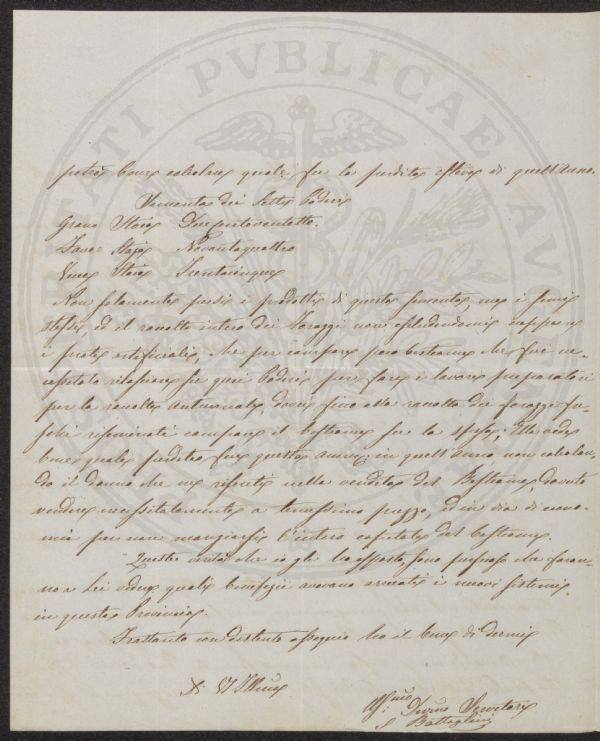 PVBLICAE
potrà bene calcolare quale fu la perdita estiva di quell'Anno.
Sementa dei Sette Poderi
Grano Staja Duecentoventotto.
Fave Staja Novantaquattro
Vena Staja Trentacinque
Non solamente persi i prodotti di questa sementa, ma i semi
stessi, ed il raccolto intero dei Foraggi non escludendomi
i prati artificiali, che per campare poco bestiame che fui
necessitato rilasciare su quei Poderi per fare i lavori preparatori
per la raccolta autunnale, dovei fino alla raccolta dei foraggi
comprare il bestiame per la spesa, Ella vede
bene quale perdita fu questa amici: in quell'anno non calcolan-
do il danno che ne risentii nella vendita del Bestiame, dovuto
vendere necessitatamente a tenuissimo prezzo, ed in via di econo-
mia per non mangiarsi l'intero capitale del bestiame.
Queste verità che io gli ho esposto, sono persuaso che faran-
no a Lei vedere quali benefizi avevano arrecati i nuovi sistemi
in questa Provincia.
Frattanto con distinto ossequio ho il bene di dirmi
Di VS Illma
Devmo Servitore
S Battaglini